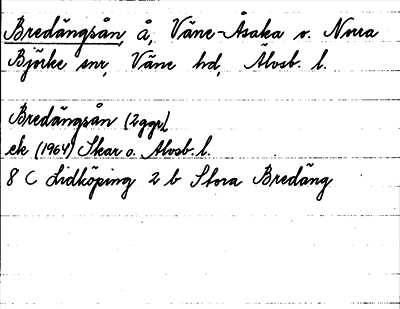 Bredängsån, å, Väne-Åsaka o. Norra
Björke snr, Väne hd, Älvsb. l.
Bredängsån (2 ggr)
ek (1964) Skar o. Älvsb. l.
8 C Lidköping 2 b Stora Bredäng